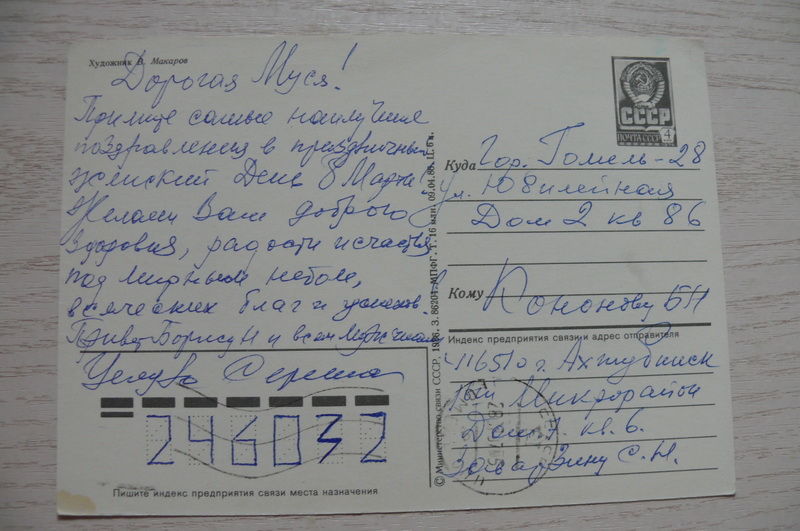 Художник В. Макаров
Дорогая Муся!
Примите самые наилучшие
поздравления в праздничный
женский День 8 Марта!
Желаем Вам доброго
здоровья, радости и счастья
под мирным небом,
всяческих благ и успехов.
Привет Борису Н и всем мужчинам
Целую Сережа
246032
Пишите индекс предприятия связи места назначения
© Министерство связи СССР, 1986. З. 86204. МПФГ. Т. 16 млн. 09.04.85. П. 6 к.
СССР
ПОЧТА СССР 4
Куда Гор. Гомель-28
ул. Юбилейная
Дом 2 кв 86
Кому Кононову БН
Индекс предприятия связи и адрес отправителя
416510 г. Ахтубинск
Микрорайон
Дом 7. кв. 6.
С. Н.